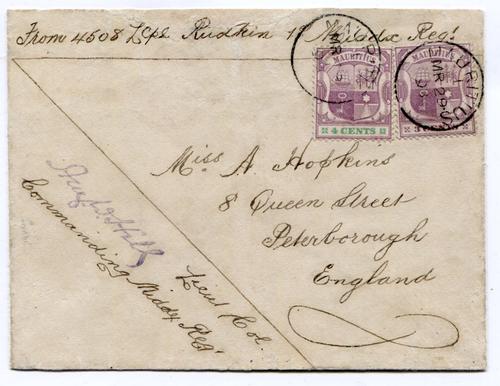 From 4508 Lcpl Rudkin 1 Middx Regt
MAURITIUS
4 CENTS
MAURITIUS
MR 29
Miss A. Hopkins
8 Queen Street
Peterborough
England
Lieut Col.
Commanding Middx Regt